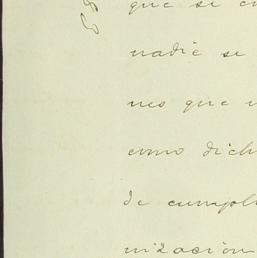 que se
nadie se
nes que
como dich
de cumpl
nizacion